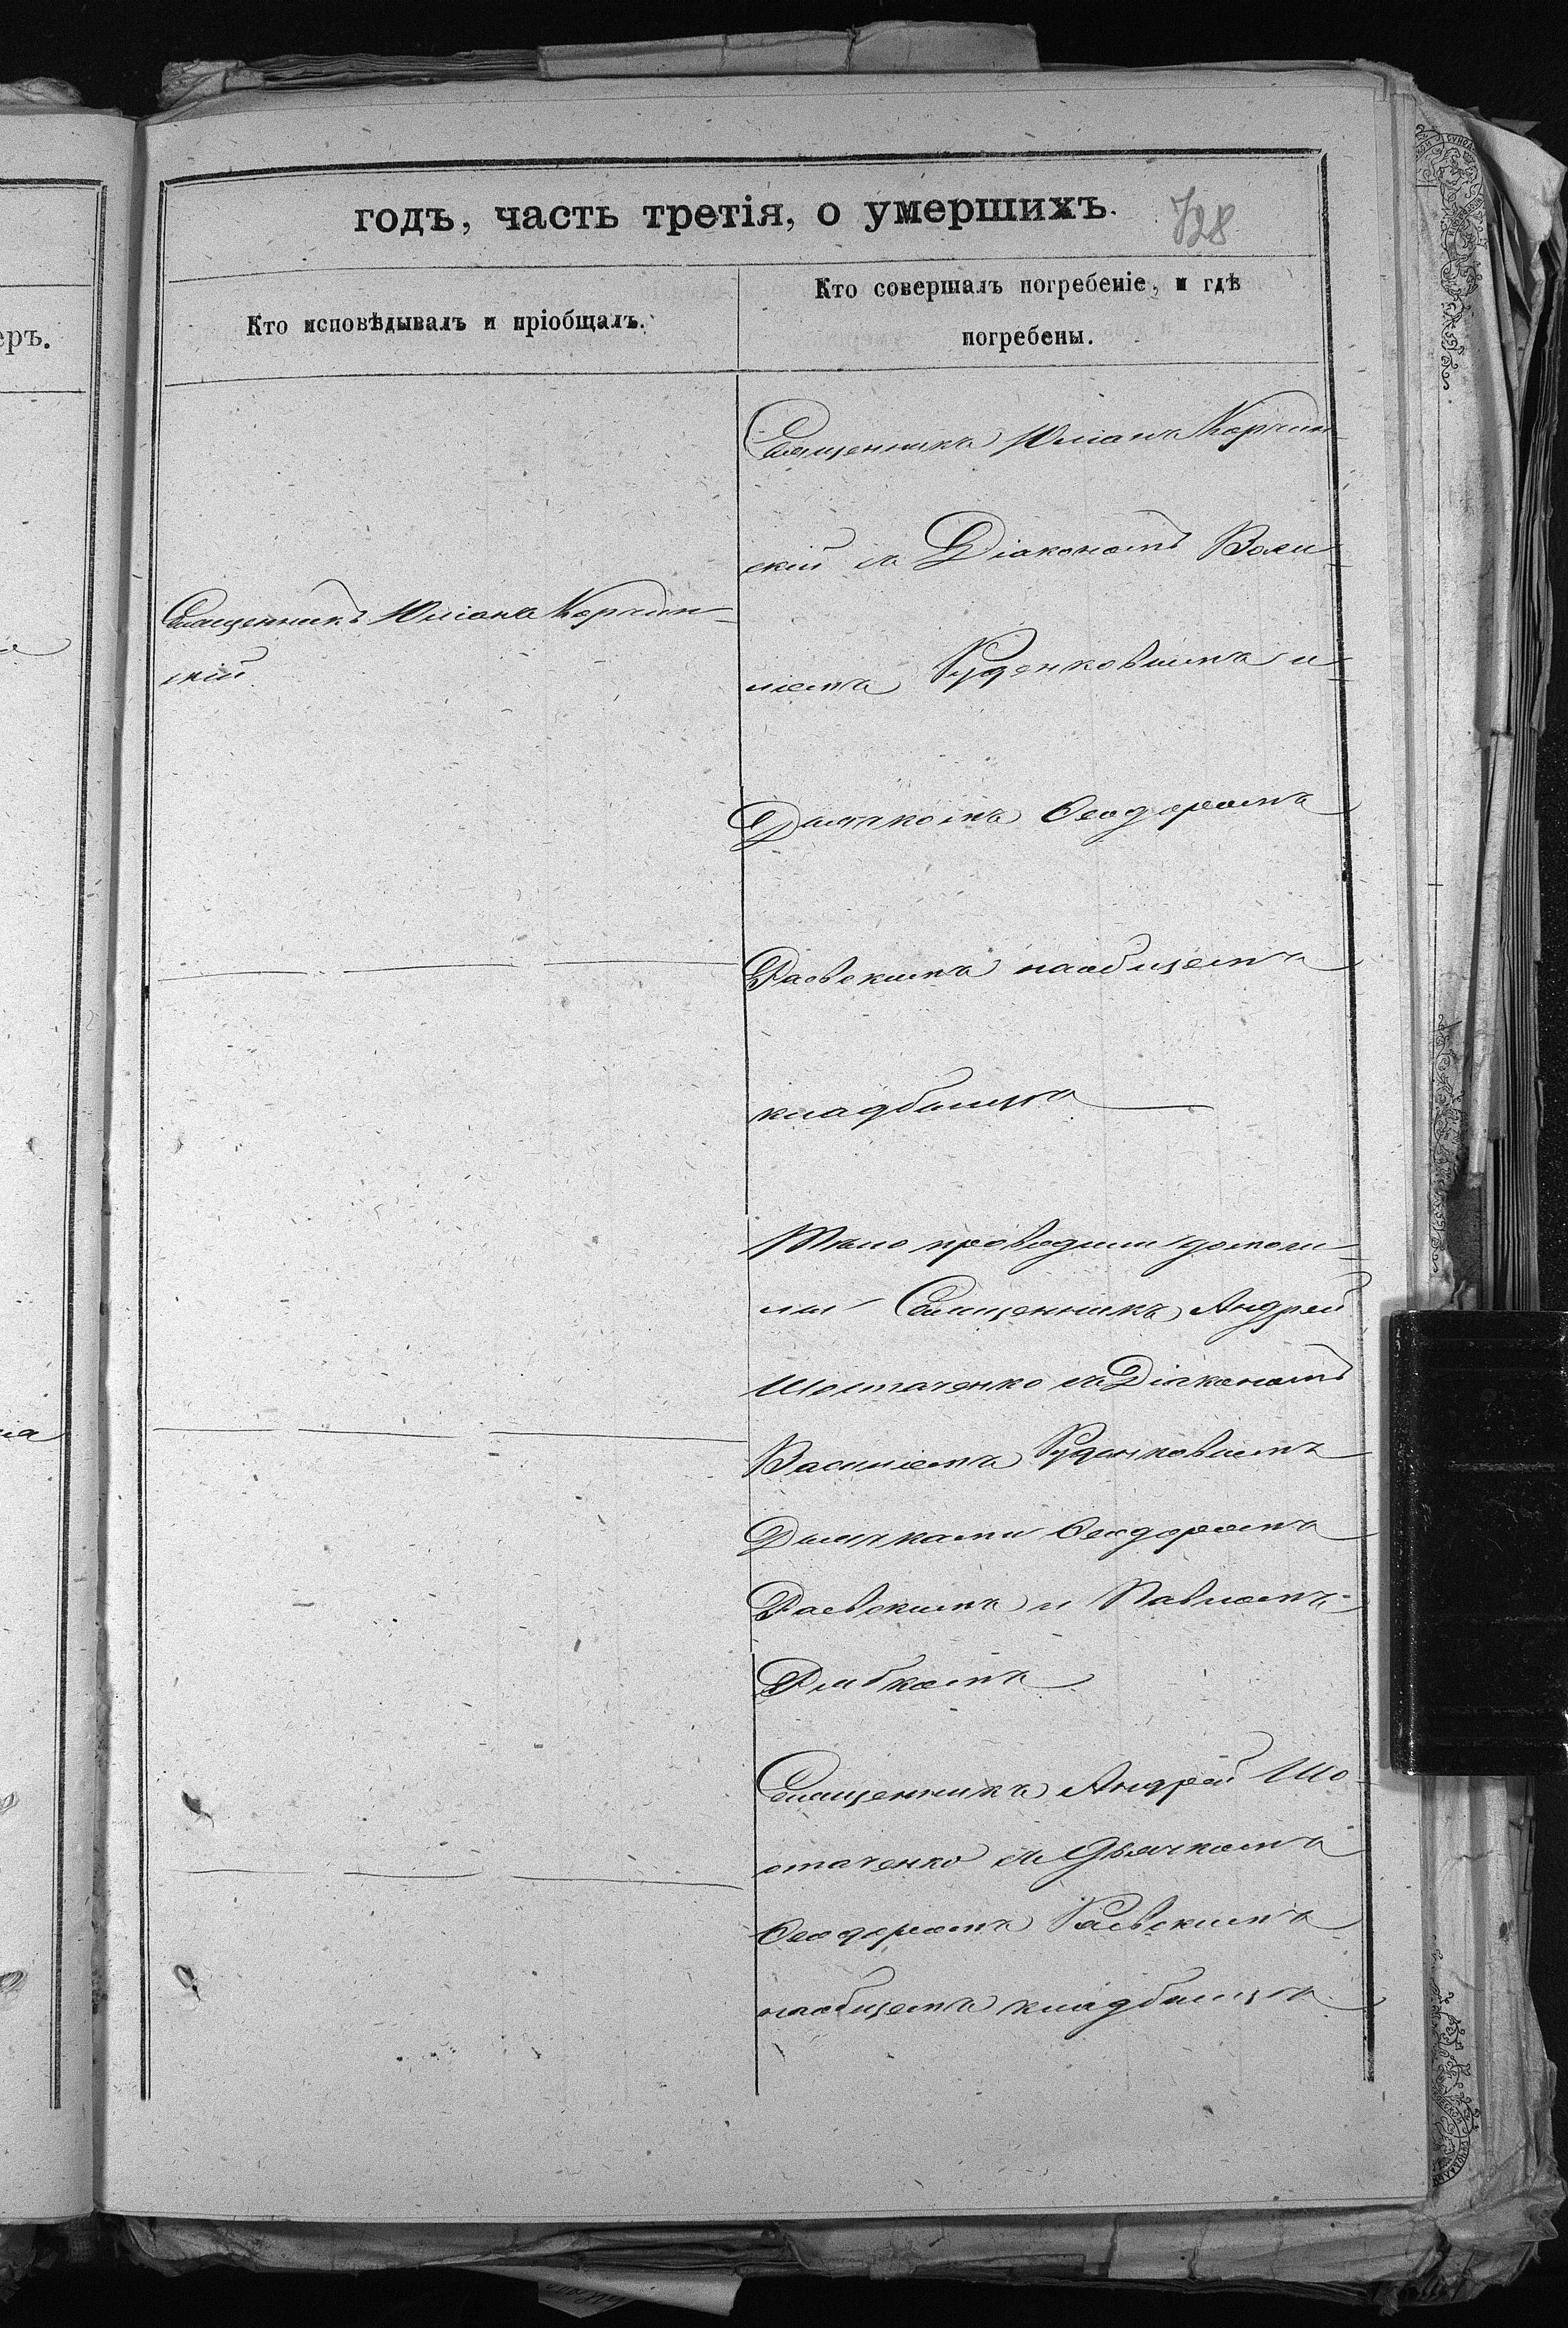 годъ, часть третія, о умершихъ.
728
еръ.
Кто исповѣдывалъ и пріобщалъ.
Кто совершалъ погребеніе, и гдѣ
погребены.
Священникъ Юліанъ Корчин-
скій
Священникъ Юліанъ Корчин-
скій съ Діакономъ Васи-
ліемъ Руденковымъ и
Дьячкомъ Ѳеодоромъ
Раевскимъ на общемъ
кладбищѣ
Тѣло проводили до моги-
лы Священникъ Андрей
Шостаченко съ Діакономъ
Василіемъ Руденковымъ
Дьячками Ѳеодоромъ
Раевскимъ и Павломъ
Рябкомъ
Священникъ Андрей Шо-
стаченко съ Дьячкомъ
Ѳеодоромъ Раевскимъ
на общемъ кладбищѣ